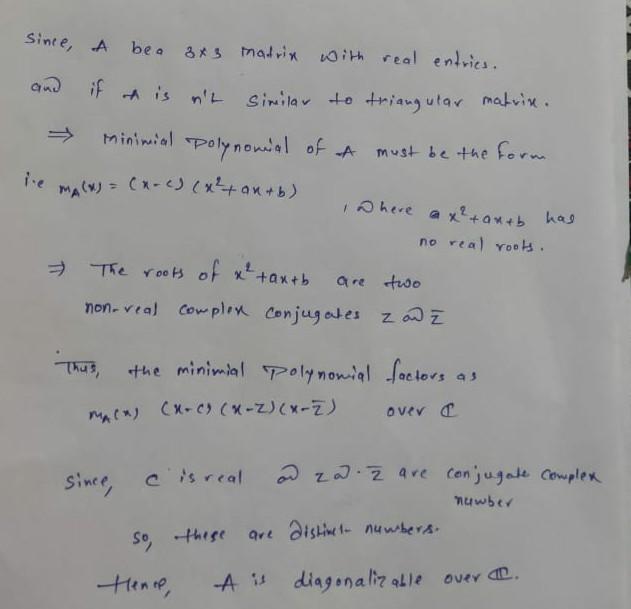 Since, A be a 3x3 matrix with real entries.
and if A is n't similar to triangular matrix.
⇒ minimial polynomial of A must be the form
i.e m_A(x) = (x-c) (x²+ax+b)
, where x²+ax+b has
no real roots.
⇒ The roots of x²+ax+b are two
non-real complex conjugates z and z̄
Thus, the minimial polynomial factors as
m_A(x) (x-c) (x-z) (x-z̄) over ℂ
Since, c is real and z and z̄ are conjugate complex
number
so, these are distinct numbers.
Hence, A is diagonalizable over ℂ.